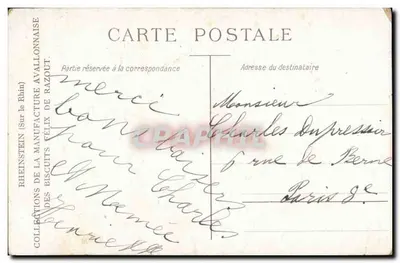 CARTE POSTALE
Partie réservée à la correspondance
Adresse du destinataire
RHEINSTEIN (Sur le Rhin)
COLLECTIONS DE LA MANUFACTURE AVALLONNAISE
DES BISCUITS FÉLIX DE RAZOUT
merci
bons baisers
pour Charles
Monsieur
Charles Dupressoir
6 rue de Berne
Paris 8e